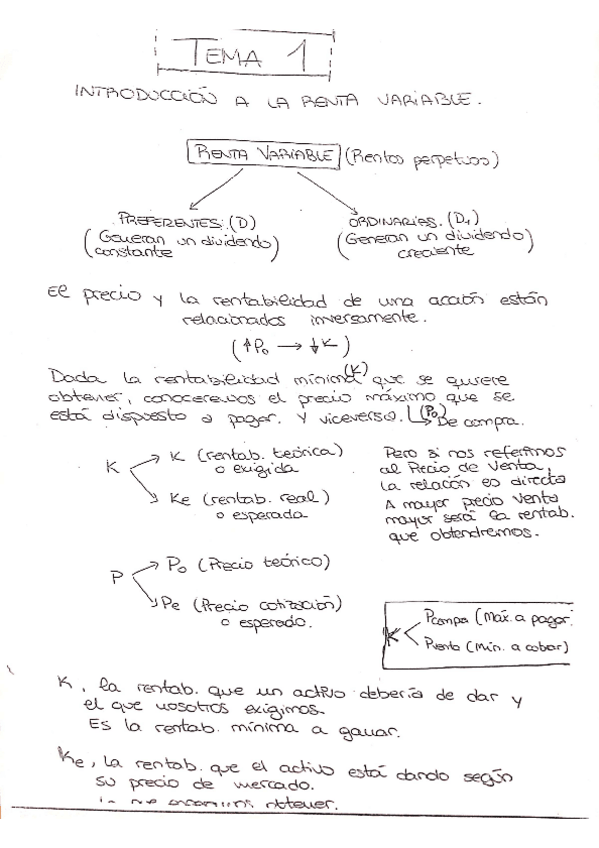 TEMA 1
INTRODUCCIÓN A LA RENTA VARIABLE.
RENTA VARIABLE (Rentas perpetuas)
PREFERENTES. (D)
(Generan un dividendo constante)
ORDINARIAS. (D1)
(Generan un dividendo creciente)
El precio y la rentabilidad de una acción están
relacionados inversamente.
(↑P0 → ↓K)
Dada la rentabilidad mínima (K) que se quiere
obtener, conoceremos el precio máximo que se
está dispuesto a pagar. Y viceversa. (P0) → De compra.
K → K (rentab. teórica)
o exigida
→ Ke (rentab. real)
o esperada
Pero si nos referimos
al Precio de Venta,
la relación es directa
A mayor precio venta
mayor será la rentab.
que obtendremos.
P → P0 (Precio teórico)
→ Pe (Precio cotización)
o esperado.
K < Pcompra (Máx. a pagar)
Pventa (Mín. a cobrar)
K, la rentab. que un activo debería de dar y
el que nosotros exigimos.
Es la rentab. mínima a ganar.
Ke, la rentab. que el activo está dando según
su precio de mercado.
obtener.